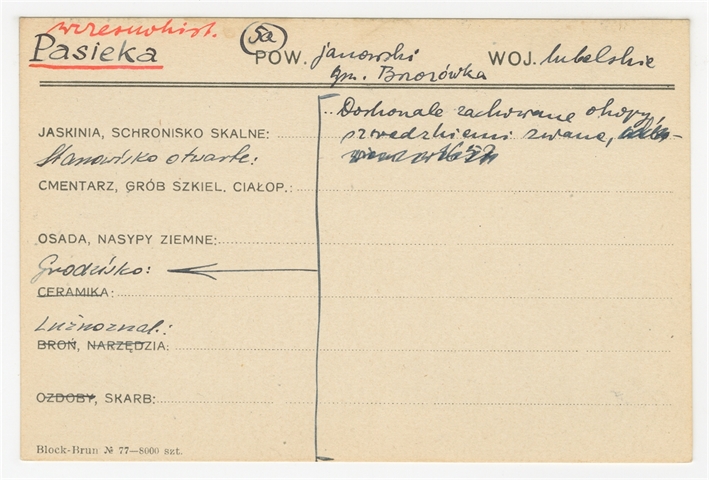 wczesnohist.
Pasieka 5a POW. janowski WOJ. lubelskie
gm. Brzozówka
Doskonale zachowane okopy
JASKINIA, SCHRONISKO SKALNE: szwedzkiemi zwane,
Stanowisko otwarte:
CMENTARZ, GRÓB SZKIEL. CIAŁOP.:
OSADA, NASYPY ZIEMNE:
Grodzisko:
CERAMIKA:
Luźnoznal.:
BROŃ, NARZĘDZIA:
OZDOBY, SKARB:
Block-Brun № 77—8000 szt.